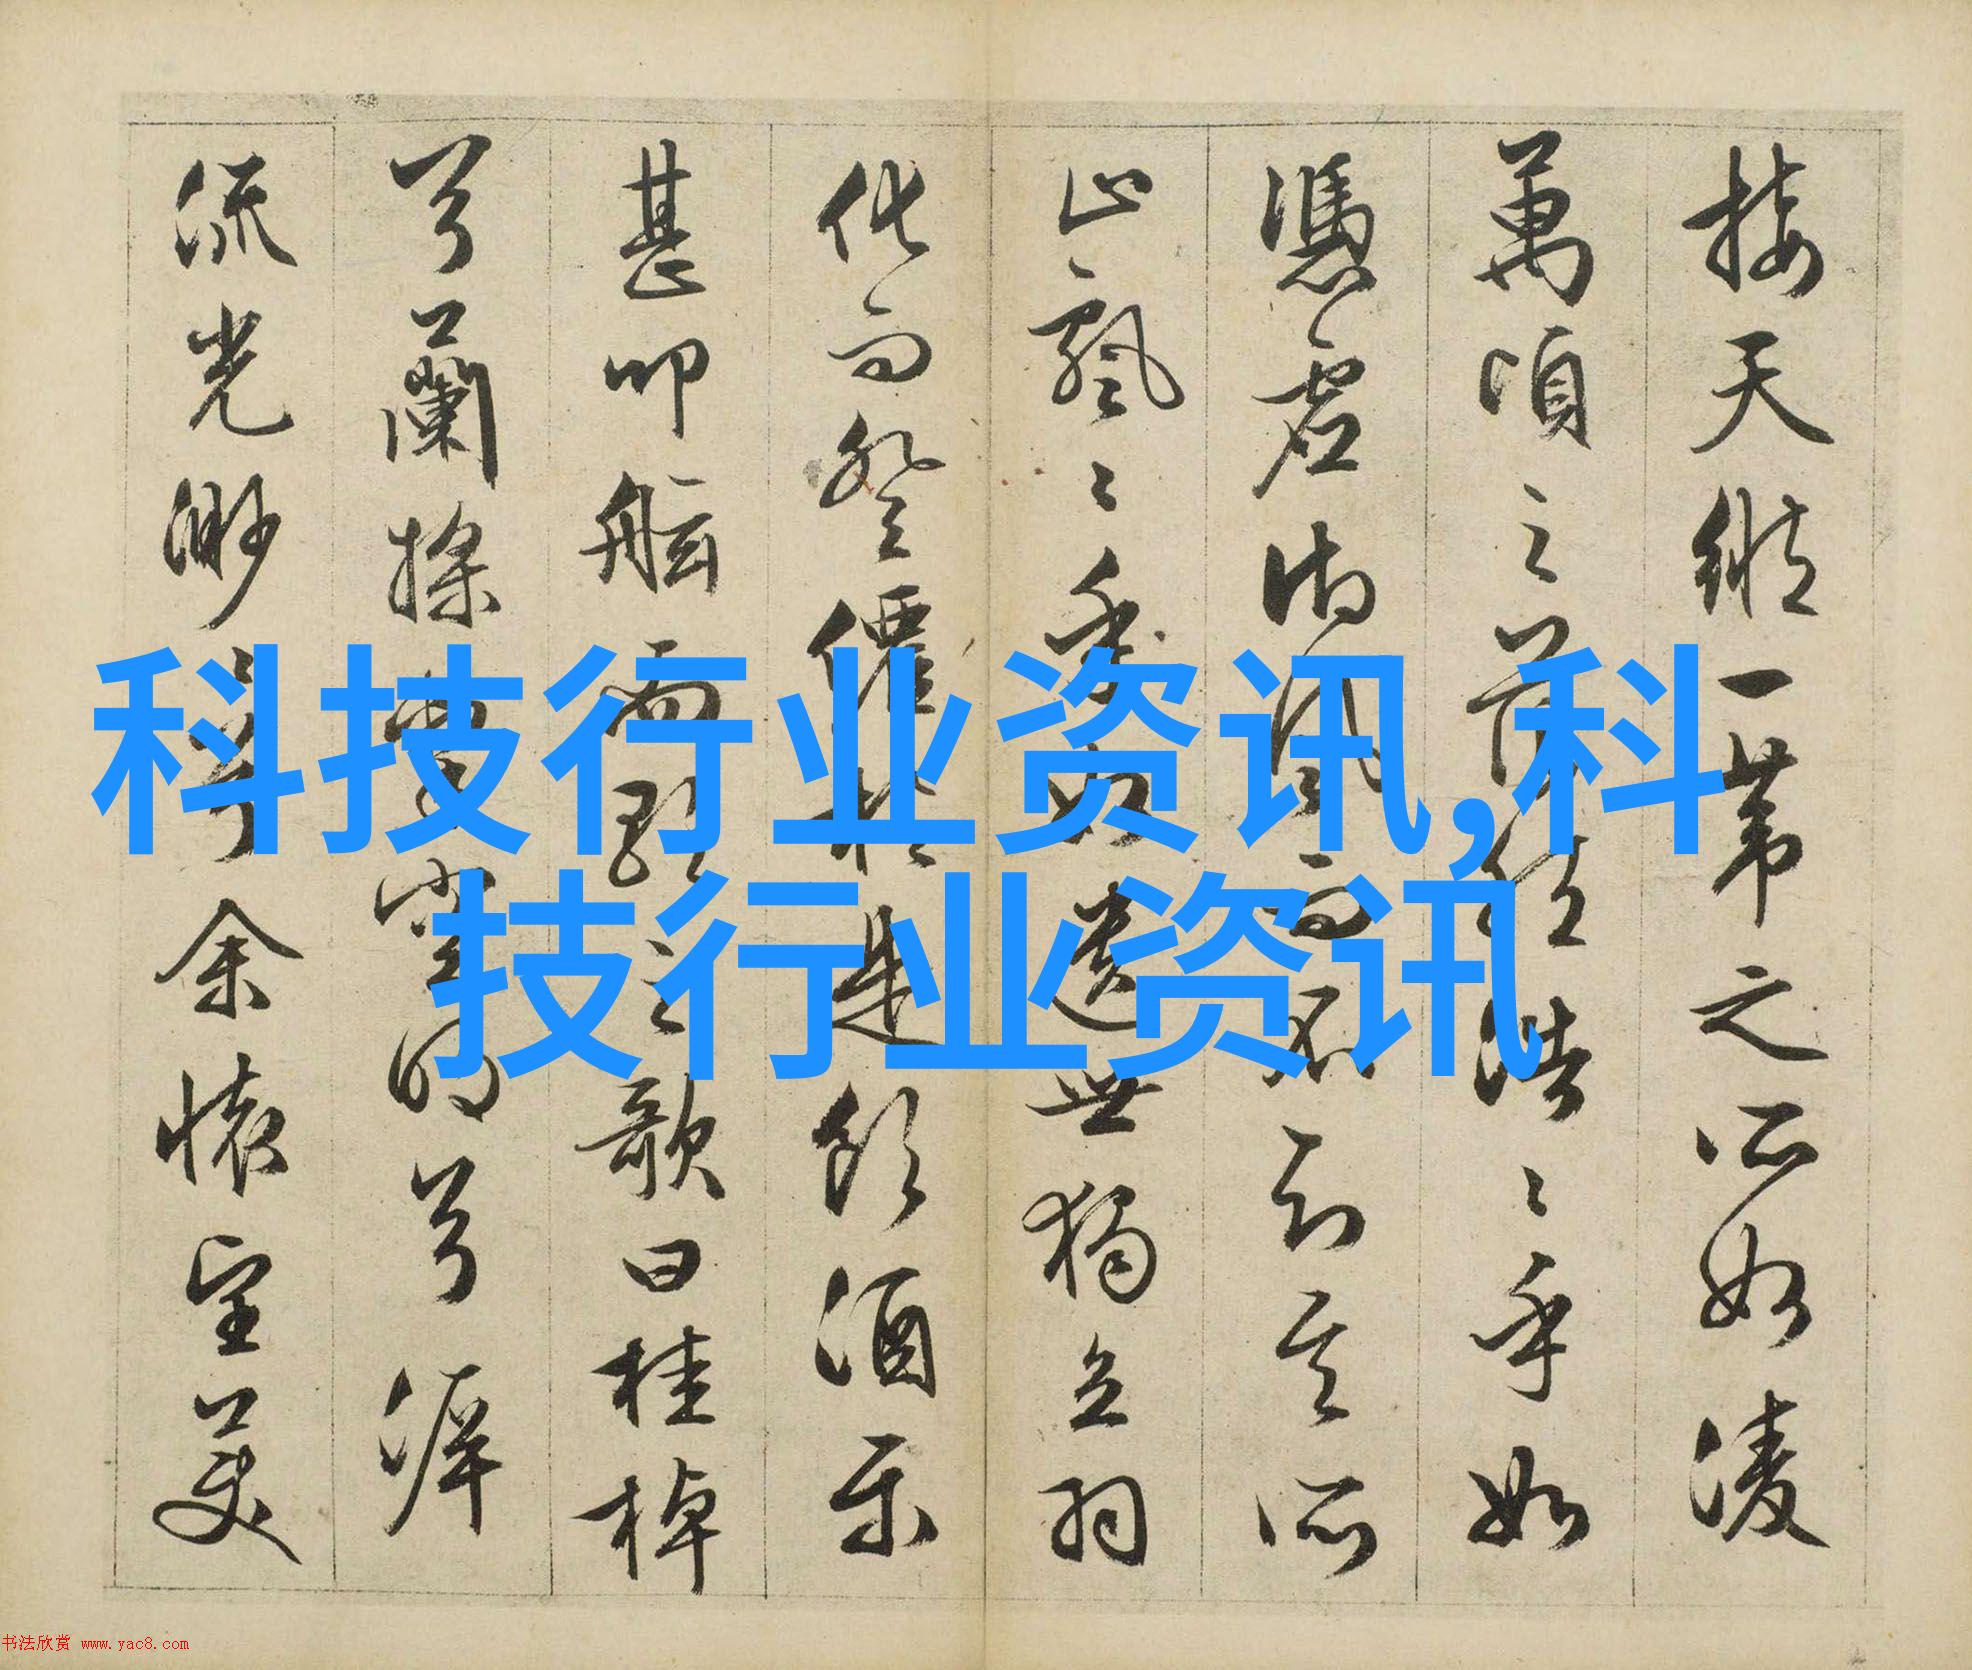 接天縱一葦之所如淩
萬頃之茫然浩〻乎如
憑虛御風而不知其所
止飄〻乎如遺世獨立羽
化而登僊於是飲酒樂
甚叩舷而歌之歌曰桂棹
兮蘭槳擊空明兮泝
流光渺〻兮余懷望美
科技行业资讯,科
技行业资讯
书法欣赏 www.yac8.com